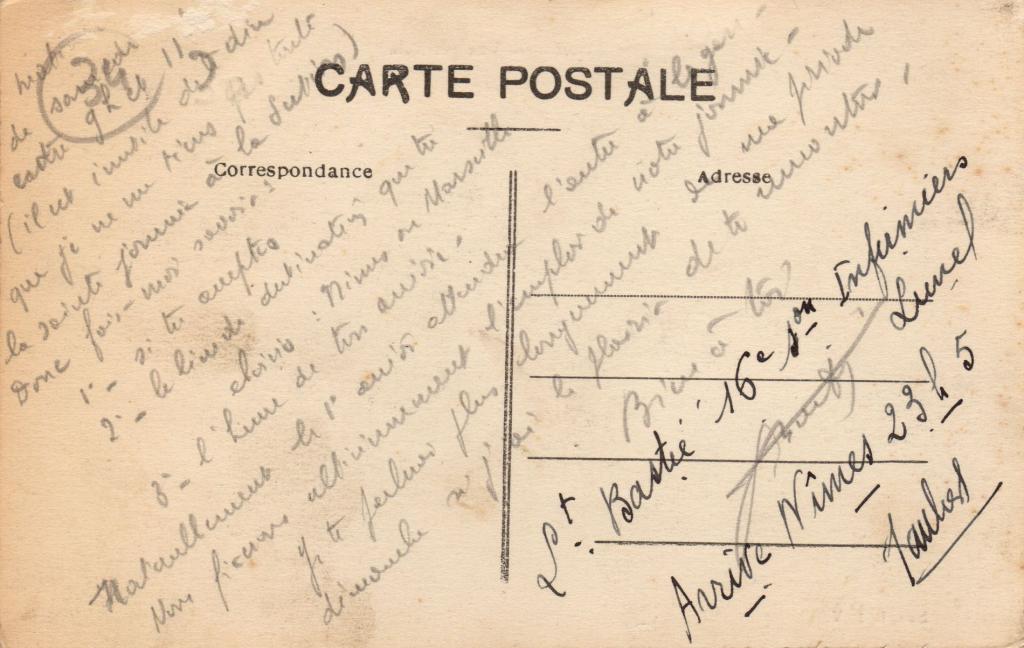 CARTE POSTALE
Correspondance
Adresse
34
nuit
de samedi
entre 9h et 11
(il est inutile de dire
que je ne me tiens
la sainte journée à la Section)
Donc fais-moi savoir:
1° - si tu acceptes
2° - le lieu de destination que tu
choisis: Nîmes ou Marseille
3° - l'heure de ton arrivée.
Naturellement le 1er arrivé attendra l'autre à la gare
Nous fixerons ultérieurement l'emploi de notre journée -
Je te plus longuement
dimanche j'ai le plaisir de te rencontrer,
Bien à toi
Lt. Bastié 16e Son Infirmiers
Lunel
Arrive Nîmes 23h 5
Jaubert